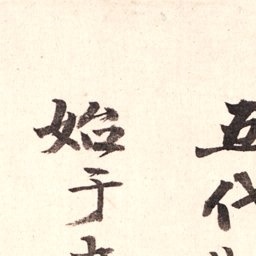 五代
始于